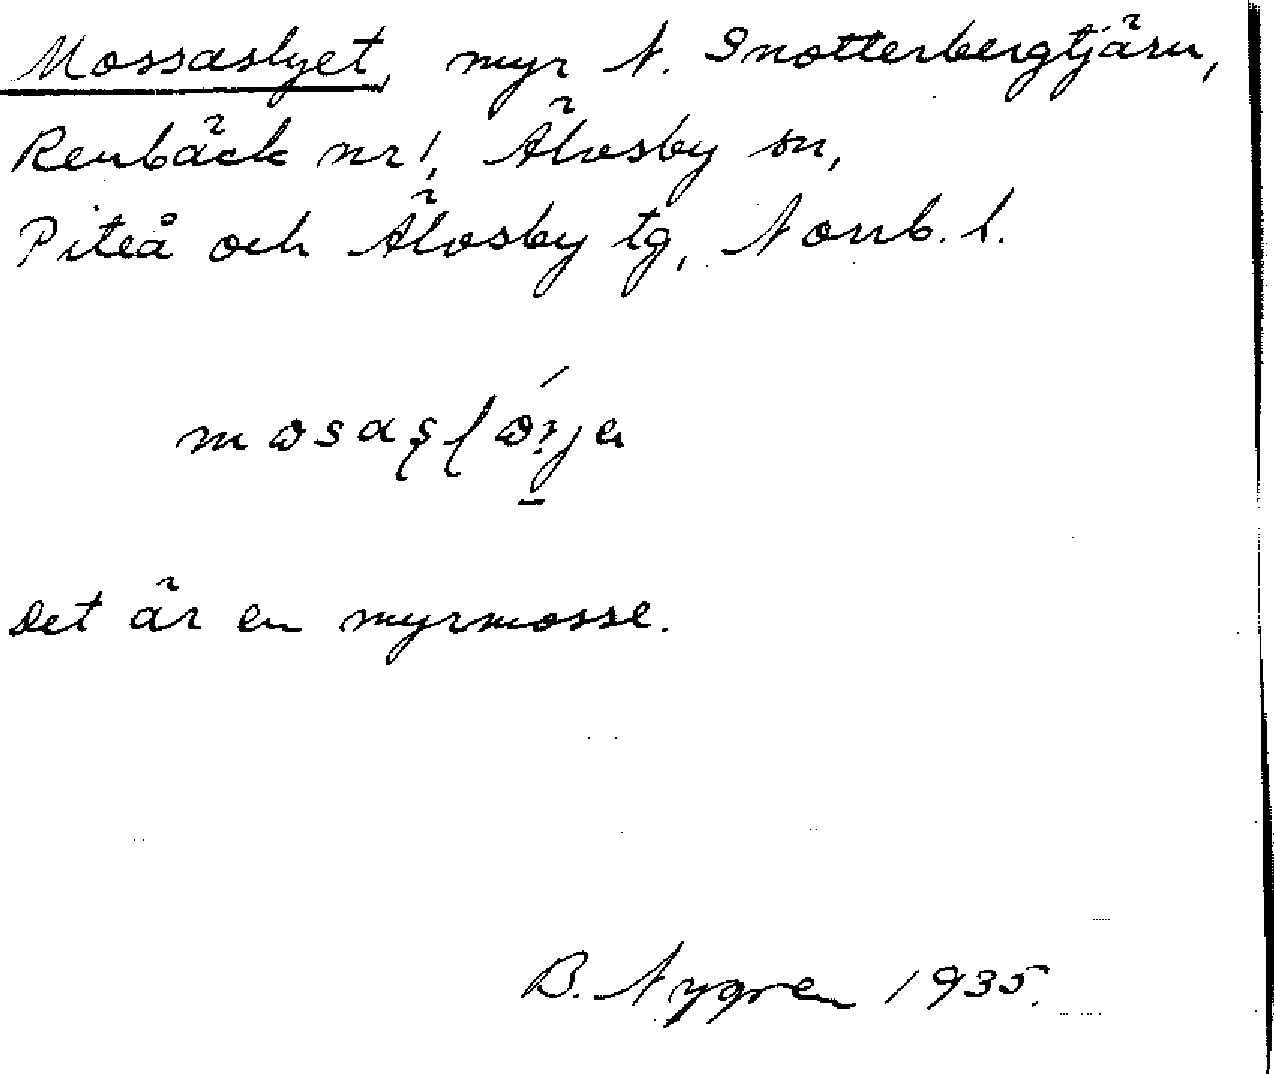 Mossaslyet, myr N. Snotterbergtjärn,
Renbäck nr 1, Älvsby sn,
Piteå och Älvsby tg, Norrb. l.
Det är en myrmosse.
B. Nygren 1935.